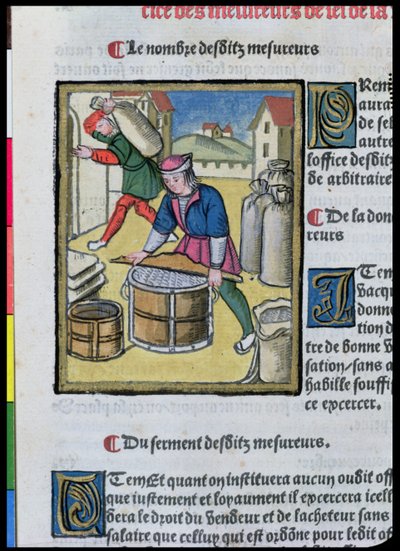 rice des mesureurs de sel de la
¶ Le nombre desditz mesureurs
PRem
aura
de sel
autre
loffice desditz
de arbitraire
¶ De la don
reurs
ITem
vacqu
donne
tion d
tre de bonne v
sation/sans a
habille souffi
ce excercer.
¶ Du serment desditz mesureurs.
ITem Et quant on instituera aucun oudit off
que iustement et loyaument il excercera icell
dera le droit du vendeur et de lacheteur sans
salaire que celluy qui est ordōne pour ledit of